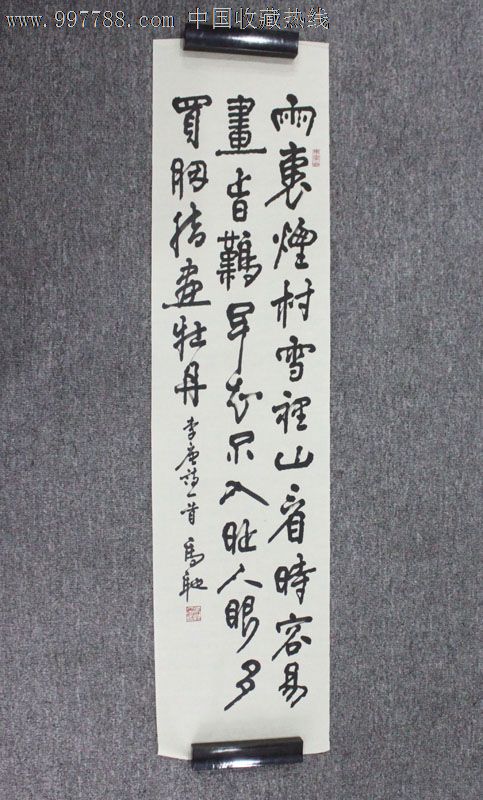 www.997788.com 中国收藏热线
雨裏煙村雪裡山看時容易
畫旹難早知不入時人眼多
買胭脂畫牡丹 李唐詩一首 馬馳